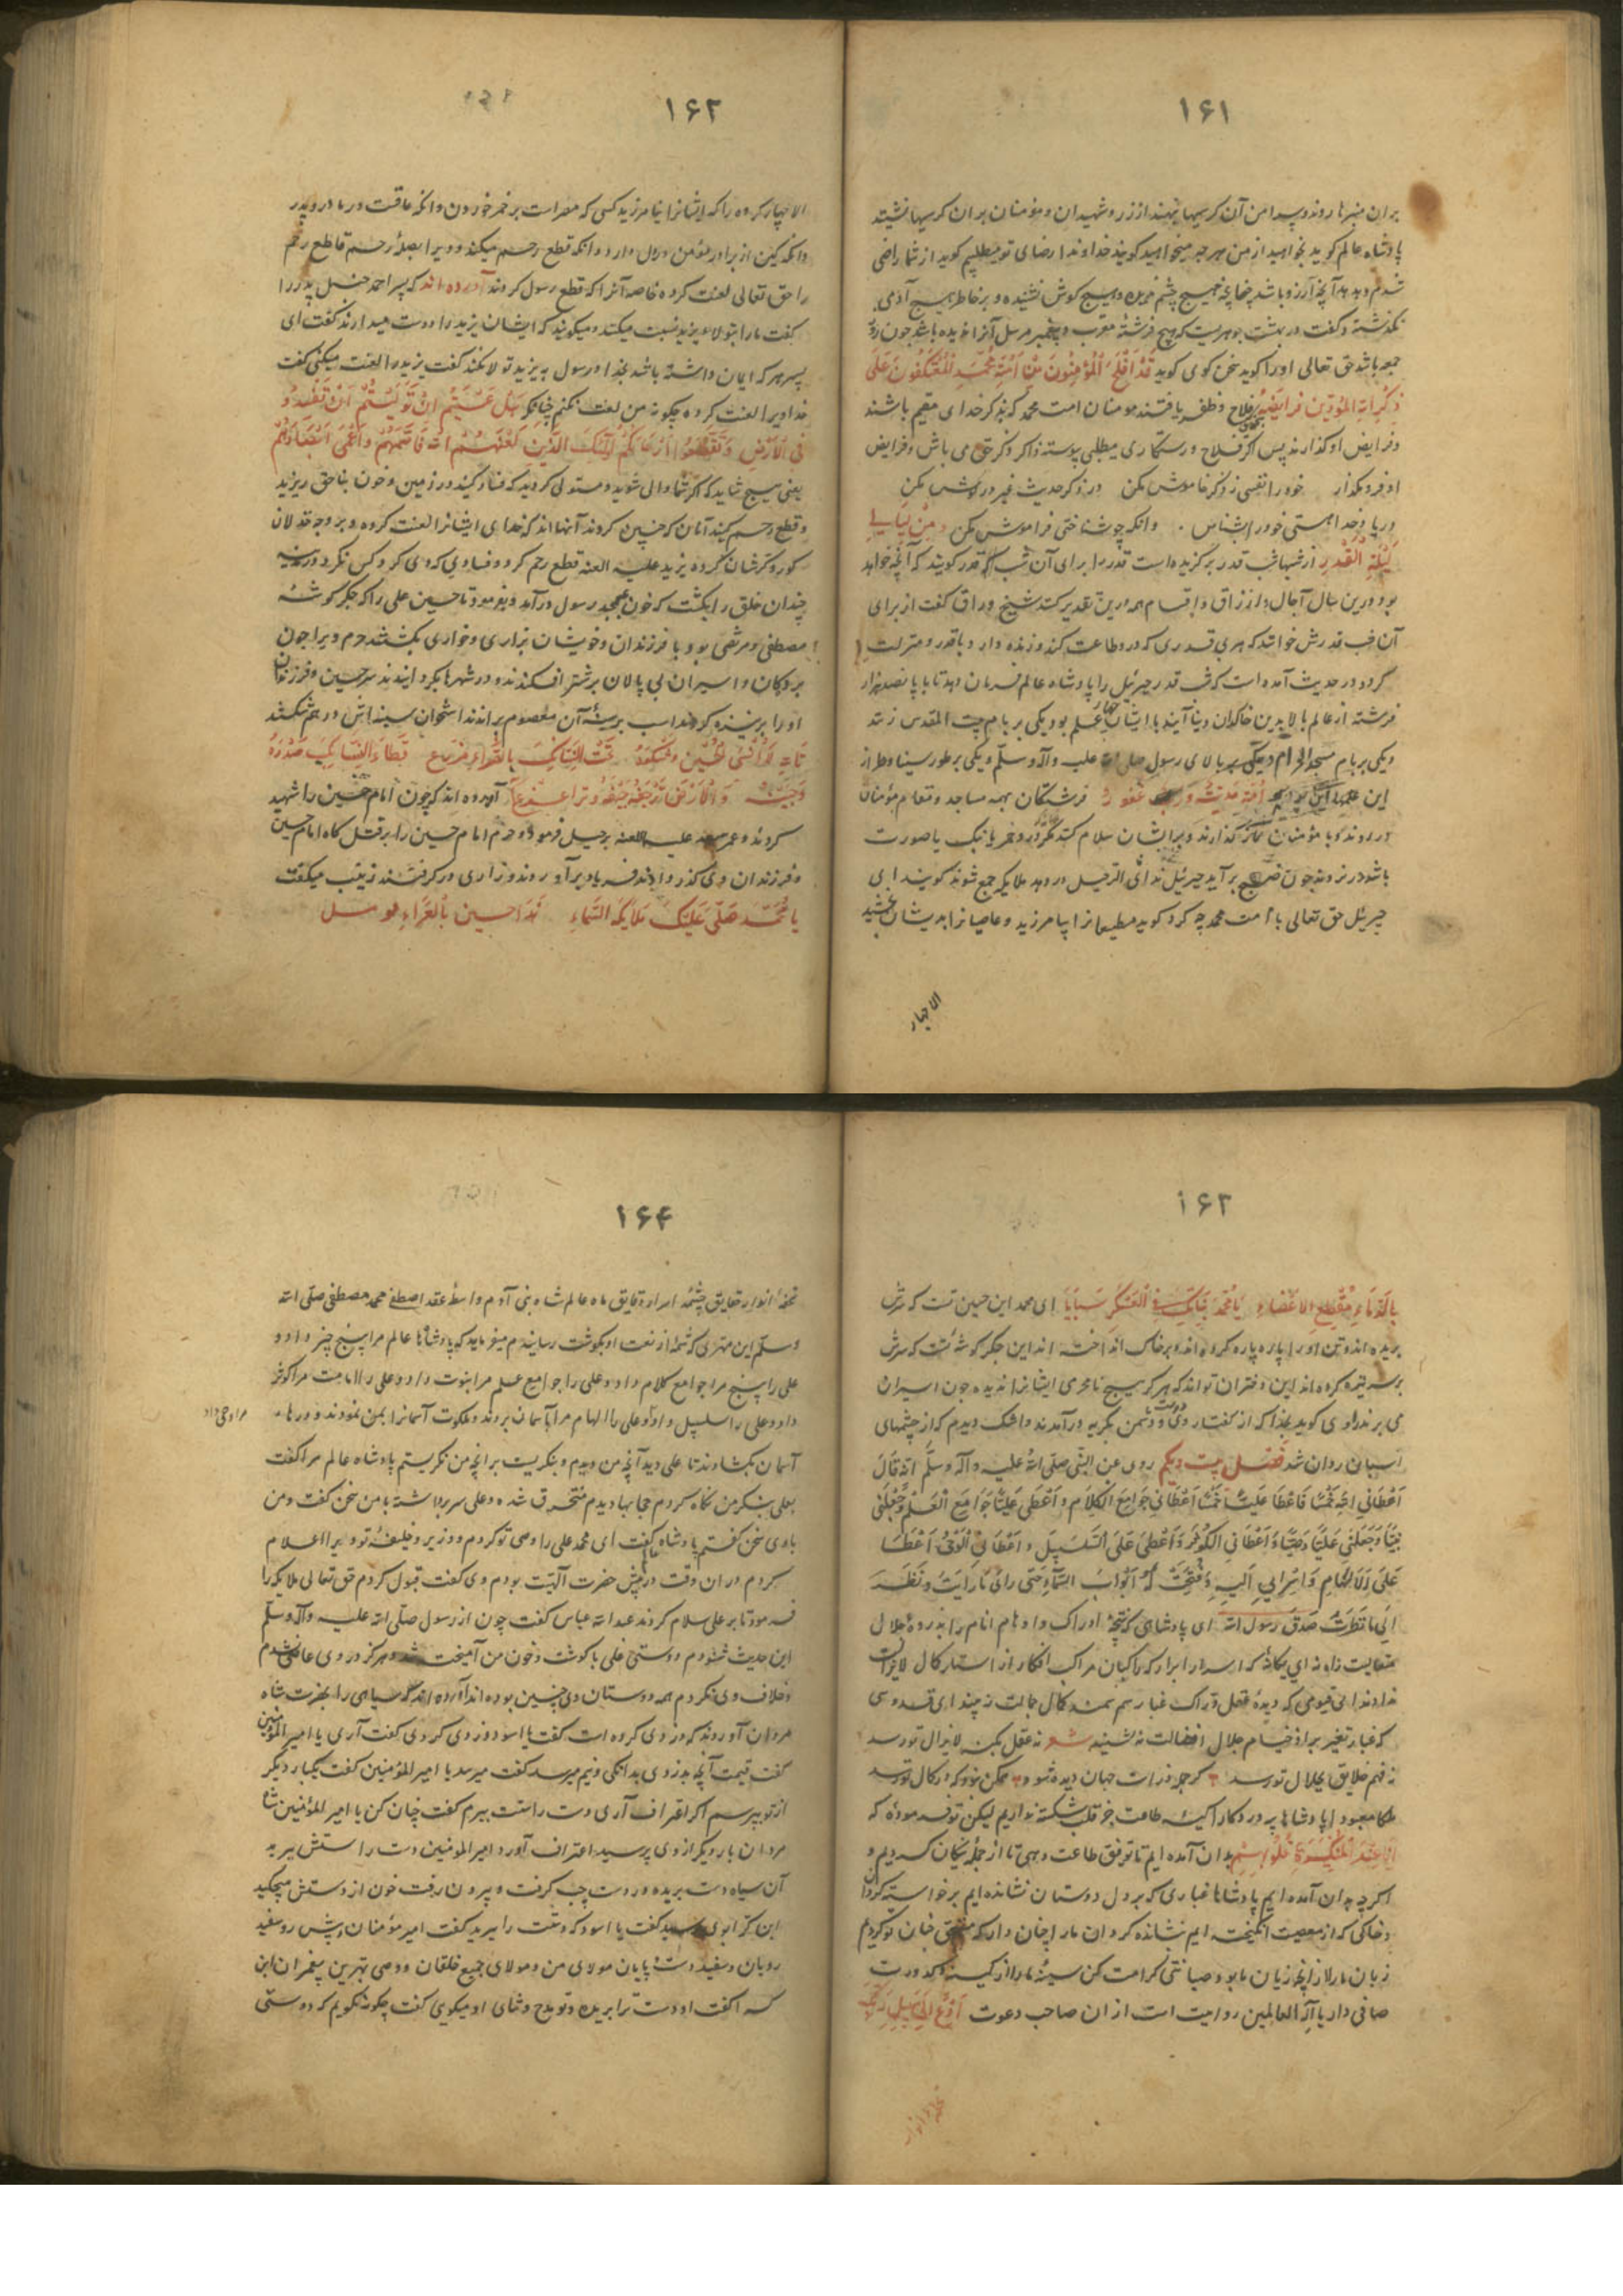 ۱۶۱
بران منبرها روند و پیرامن آن کرسیها بنهند از زر و شهیدان و مؤمنان بران کرسیها نشینند
پادشاه عالم کوید بخواهید از من هر چه میخواهید کویند خداوندا رضای تو میطلبیم کوید از شما راضی
شدم و بدهد آنچه آرزو باشد چنانچه هیچ چشم ندیده و هیچ کوش نشنیده و بر خاطر هیچ آدمی
نکذشته و کفت در بهشت جوهریست که هیچ فرشتهٔ مقرب و پیغمبر مرسل آنرا ندیده باشد چون روز
جمعه باشد حق تعالی او را کوید سخن کوی کوید قَدْ اَفْلَحَ الْمُؤْمِنُونَ مِنْ اُمَّةِ مُحَمَّدٍ الْمُعْتَكِفُونَ عَلَى
فلاح و ظفر یافتند مومنان امت محمد که بذکر خدای مقیم باشند
و فرایض او کذارند پس اکر فلاح و رستکاری میطلبی پیوسته ذاکر و ذکر حق می باش و فرایض
او فرو مکذار خود را نفسی ز ذکر خاموش مکن در ذکر حدیث غیر در کوش مکن
خود را شناس وانکه چو شناختی فراموش مکن وَمِنْ لَيَالِي
لَيْلَةِ الْقَدْرِ از شبها شب قدر برکزیده است قدر را برای آن شب قدر کویند که آنچه خواهد
بود درین سال آجال و ارزاق و اقسام همه درین تقدیر کنند شیخ وراق کفت از برای
آن شب قدرش خوانند که هر بی قدری که در و طاعت کند و زنده دارد با قدر و منزلت
کردد و در حدیث آمده است که شب قدر جبرئیل را پادشاه عالم فرمان دهد تا با پانصد هزار
فرشته از عالم بالا بدین خاکدان دنیا آیند با ایشان چهار علم بود یکی بر بام بیت المقدس زنند
و یکی بر بام مسجد الحرام و یکی بر بالای رسول صلی الله علیه وآله وسلّم و یکی بر طور سینا و طراز
این علمها این بود که اُمَّةٌ مُذْنِبَةٌ وَرَبٌّ غَفُورٌ فرشتکان بهمه مساجد و مقام مؤمنان
در روند و با مؤمنان نماز کذارند و بر ایشان سلام کنند
باشد در نروند چون صبح برآید جبرئیل ندای الرحیل در دهد ملایکه جمع شوند کویند ای
جبرئیل حق تعالی با امت محمد چه کرد کوید مطیعانرا بیامرزید و عاصیانرا بدیشان بخشید
الا چهار
۱۶۲
الا چهار کروه را که ایشانرا نیامرزید کسی که مصر است بر خمر خوردن و انکه عاقست در مادر و پدر
وانکه کین از برادر مؤمن در دل دارد و انکه قطع رحم میکند و ویرا بصلهٔ رحم قاطع رحم
را حق تعالی لعنت کرده خاصه آنرا که قطع رسول کردند آورده اند که پسر احمد حنبل پدر را
کفت ما را بتولاء یزید نسبت میکنند و میکویند که ایشان یزید را دوست میدارند کفت ای
پسر هر که ایمان داشته باشد بخدا و رسول به یزید تولا نکند کفت یزید را لعنت میکنی کفت
خدا ویرا لعنت کرده چکونه من لعنت نکنم چنانکه فَهَلْ عَسَيْتُمْ اِنْ تَوَلَّيْتُمْ اَنْ تُفْسِدُوا
فِي الْاَرْضِ وَتُقَطِّعُوا اَرْحَامَكُمْ اُولٰئِكَ الَّذِينَ لَعَنَهُمُ اللّٰهُ فَاَصَمَّهُمْ وَاَعْمٰى اَبْصَارَهُمْ
یعنی هیچ شاید که اکر شما والی شوید و مستولی کردید که فساد کنید در زمین و خون بناحق ریزید
و قطع رحم کنید آنان که چنین کردند آنها اند که خدای ایشانرا لعنت کرده و بر وجه خذلان
کور و کرشان کرده یزید علیه اللعنه قطع رحم کرد و فسادی که وی کرد کس نکرد در مدینه
چندان خلق را بکشت که خون بمسجد رسول درآمد و بفرمود تا حسین علی را که جکر کوشهٔ
مصطفی و مرتضی بود با فرزندان و خویشان بزاری و خواری بکشتند حرم ویرا چون
بردکان و اسیران بی پالان بر شتر افکندند و در شهرها بکردانیدند سر حسین و فرزندان
او را بر نیزه کردند اسب بر سینهٔ آن معصوم براندند استخوان سینه اش در هم شکستند
آورده اند که چون امام حسین را شهید
کردند و عمر سعد علیه اللعنه برحیل فرمود و حرم امام حسین را بر قتل کاه امام حسین
و فرزندان وی کذر دادند فریاد برآوردند و زاری در کرفتند زینب میکفت
يَا مُحَمَّد صَلّٰى عَلَيْكَ مَلَائِكَةُ السَّمَاءِ هٰذَا حسين بِالْعَرَاءِ مرمل
۱۶۳
بِالدِّمَاءِ مُقَطَّعِ الاَعْضَاءِ يَا مُحَمَّدُ بَنَاتُكَ فِي الْعَسْكَرِ سَبَايَا ای محمد این حسین تست که سرش
بریده اند و تن او را پاره پاره کرده اند و بر خاک انداخته اند این جکر کوشهٔ تست که سرش
بر سر نیزه کرده اند این دختران تو اند که هرکز هیچ نامحرمی ایشانرا ندیده چون اسیران
می برند راوی کوید بخدا که از کفتار وی دوست و دشمن بکریه درآمدند و اشک دیدم که از چشمهای
اسبان روان شد فصل بیست و یکم روی عن النّبی صلّی اللّه علیه وآله وسلّم انّه قالَ
اَعْطَانِي اللّٰهُ خَمْسًا وَاَعْطَا عَلِيًّا خَمْسًا اَعْطَانِي جَوَامِعَ الْكَلَامِ وَاَعْطٰى عَلِيًّا جَوَامِعَ الْعِلْمِ وَجَعَلَنِي
نَبِيًّا وَجَعَلَ عَلِيًّا وَصِيًّا وَاَعْطَانِي الْكَوْثَرَ وَاَعْطٰى عَلِيَّ السَّلْسَبِيلَ وَاَعْطَانِي الْوَحْيَ وَاَعْطَا
عَلِيَّ الْاِلْهَامَ وَاُسْرِيَ بِي اِلَيْهِ وَفُتِحَتْ لَهُ اَبْوَابُ السَّمَاءِ حَتّٰى رَاٰى مَا رَاَيْتُ وَنَظَرَ
اِلٰى مَا نَظَرْتُ صَدَقَ رَسُولُ اللّٰه ای پادشاهی که نتیجهٔ ادراک و اوهام انام را بذروهٔ جلال
متعالیت راه نه ای یکانهٔ که اسرار ابرار که راکبان مراکب افکار از استار کمال لایزالت
نه ای قیومی که دیدهٔ عقل دراک غبار سم سمند کمال جمالت نه بیند ای قدوسی
که غبار تغیر بر اذیال خیام جلال افضالت نه نشیند شعر نه عقل بکنه لایزال تو رسد
نه فهم خلایق بجلال تو رسد کر جمله ذرات جهان دیده شود ممکن نبود که در کمال تو رسد
ملکا معبودا پادشاها پروردکارا کیسهٔ طاعت جز قلب شکسته نداریم لیکن تو فرمودهٔ که
اَنَا عِنْدَ الْمُنْكَسِرَةِ قُلُوبُهُمْ بدان آمده ایم تا توفیق طاعت دهی تا از جملهٔ نیکان کردیم و
اکر چه بدان آمده ایم پادشاها غباری که بر دل دوستان نشانده ایم برخواسته کردان
و خاکی که از معصیت انکیخته ایم نشانده کردان ما را چنان دار که
زبان ما را از آنچه زیان ما بود صیانتی کرامت کن سینهٔ ما را از کینه و کدورت
صافی دار یا آلٰه العالمین روایت است از ان صاحب دعوت اُدْعُ اِلٰى سَبِيلِ رَبِّكَ
۱۶۴
تحفهٔ انوار حقایق چشمهٔ اسرار دقایق ماه عالم شاه بنی آدم واسطهٔ عقد اصطفی محمد مصطفی صلّی الله
وسلّم این مهتری که شمهٔ از نعت او بکوشت رسانیدم میفرماید که پادشاه عالم مرا پنج چیز داد و
علی را پنج مرا جوامع کلام داد و علی را جوامع علم مرا نبوت داد و علی را امامت مرا کوثر
داد و علی را سلسبیل و علی را الهام مرا بآسمان بردند و ملکوت آسمانرا بمن نمودند و درهاء
مرا وحی داد
آسمان بکشادند تا علی دید آنچه من دیدم و بنکریست بر آنچه من نکریستم پادشاه عالم مرا کفت
بعلی بنکر من نکاه کردم حجابها دیدم منخرق شده و علی سر برداشته با من سخن کفت و من
با وی سخن کفتم پادشاه عالم کفت ای محمد علی را وصی تو کردم و وزیر و خلیفهٔ تو ویرا اعلام
کردم در ان وقت در پیش حضرت الٓهیت بودم وی کفت قبول کردم حق تعالی ملایکه را
فرمود تا بر علی سلام کردند عبد الله عباس کفت چون از رسول صلّی الله علیه وآله وسلّم
این حدیث شنودم دوستی علی با کوشت و خون من آمیخت و هرکز در وی عاصی نشدم
و خلاف وی نکردم همه دوستان وی چنین بوده اند آورده اند که سیاهی را بحضرت شاه
مردان آوردند که دزدی کرده است کفت یا اسود دزدی کردی کفت آری یا امیر المؤمنین
کفت قیمت آنچه بدزدی بدانکی و نیم میرسد کفت میرسد یا امیر المؤمنین کفت یکبار دیکر
از تو بپرسم اکر اعتراف آری دست راستت ببرم کفت چنان کن یا امیر المؤمنین شاه
مردان بار دیکر از وی پرسید اعتراف آورد امیر المومنین دست راستش ببرید
آن سیاه دست بریده در دست چپ کرفت و بیرون رفت خون از دستش میچکید
ابن کوا بوی رسید کفت یا اسود که دستت را ببرید کفت امیر مؤمنان و پیش رو سفید
رویان و سفید دست و پایان مولای من و مولای جمیع خلقان و وصی بهترین پیغمبران ابن
کوا کفت او دست ترا بریده و تو مدح و ثنای او میکویی کفت چکونه نکویم که دوستی